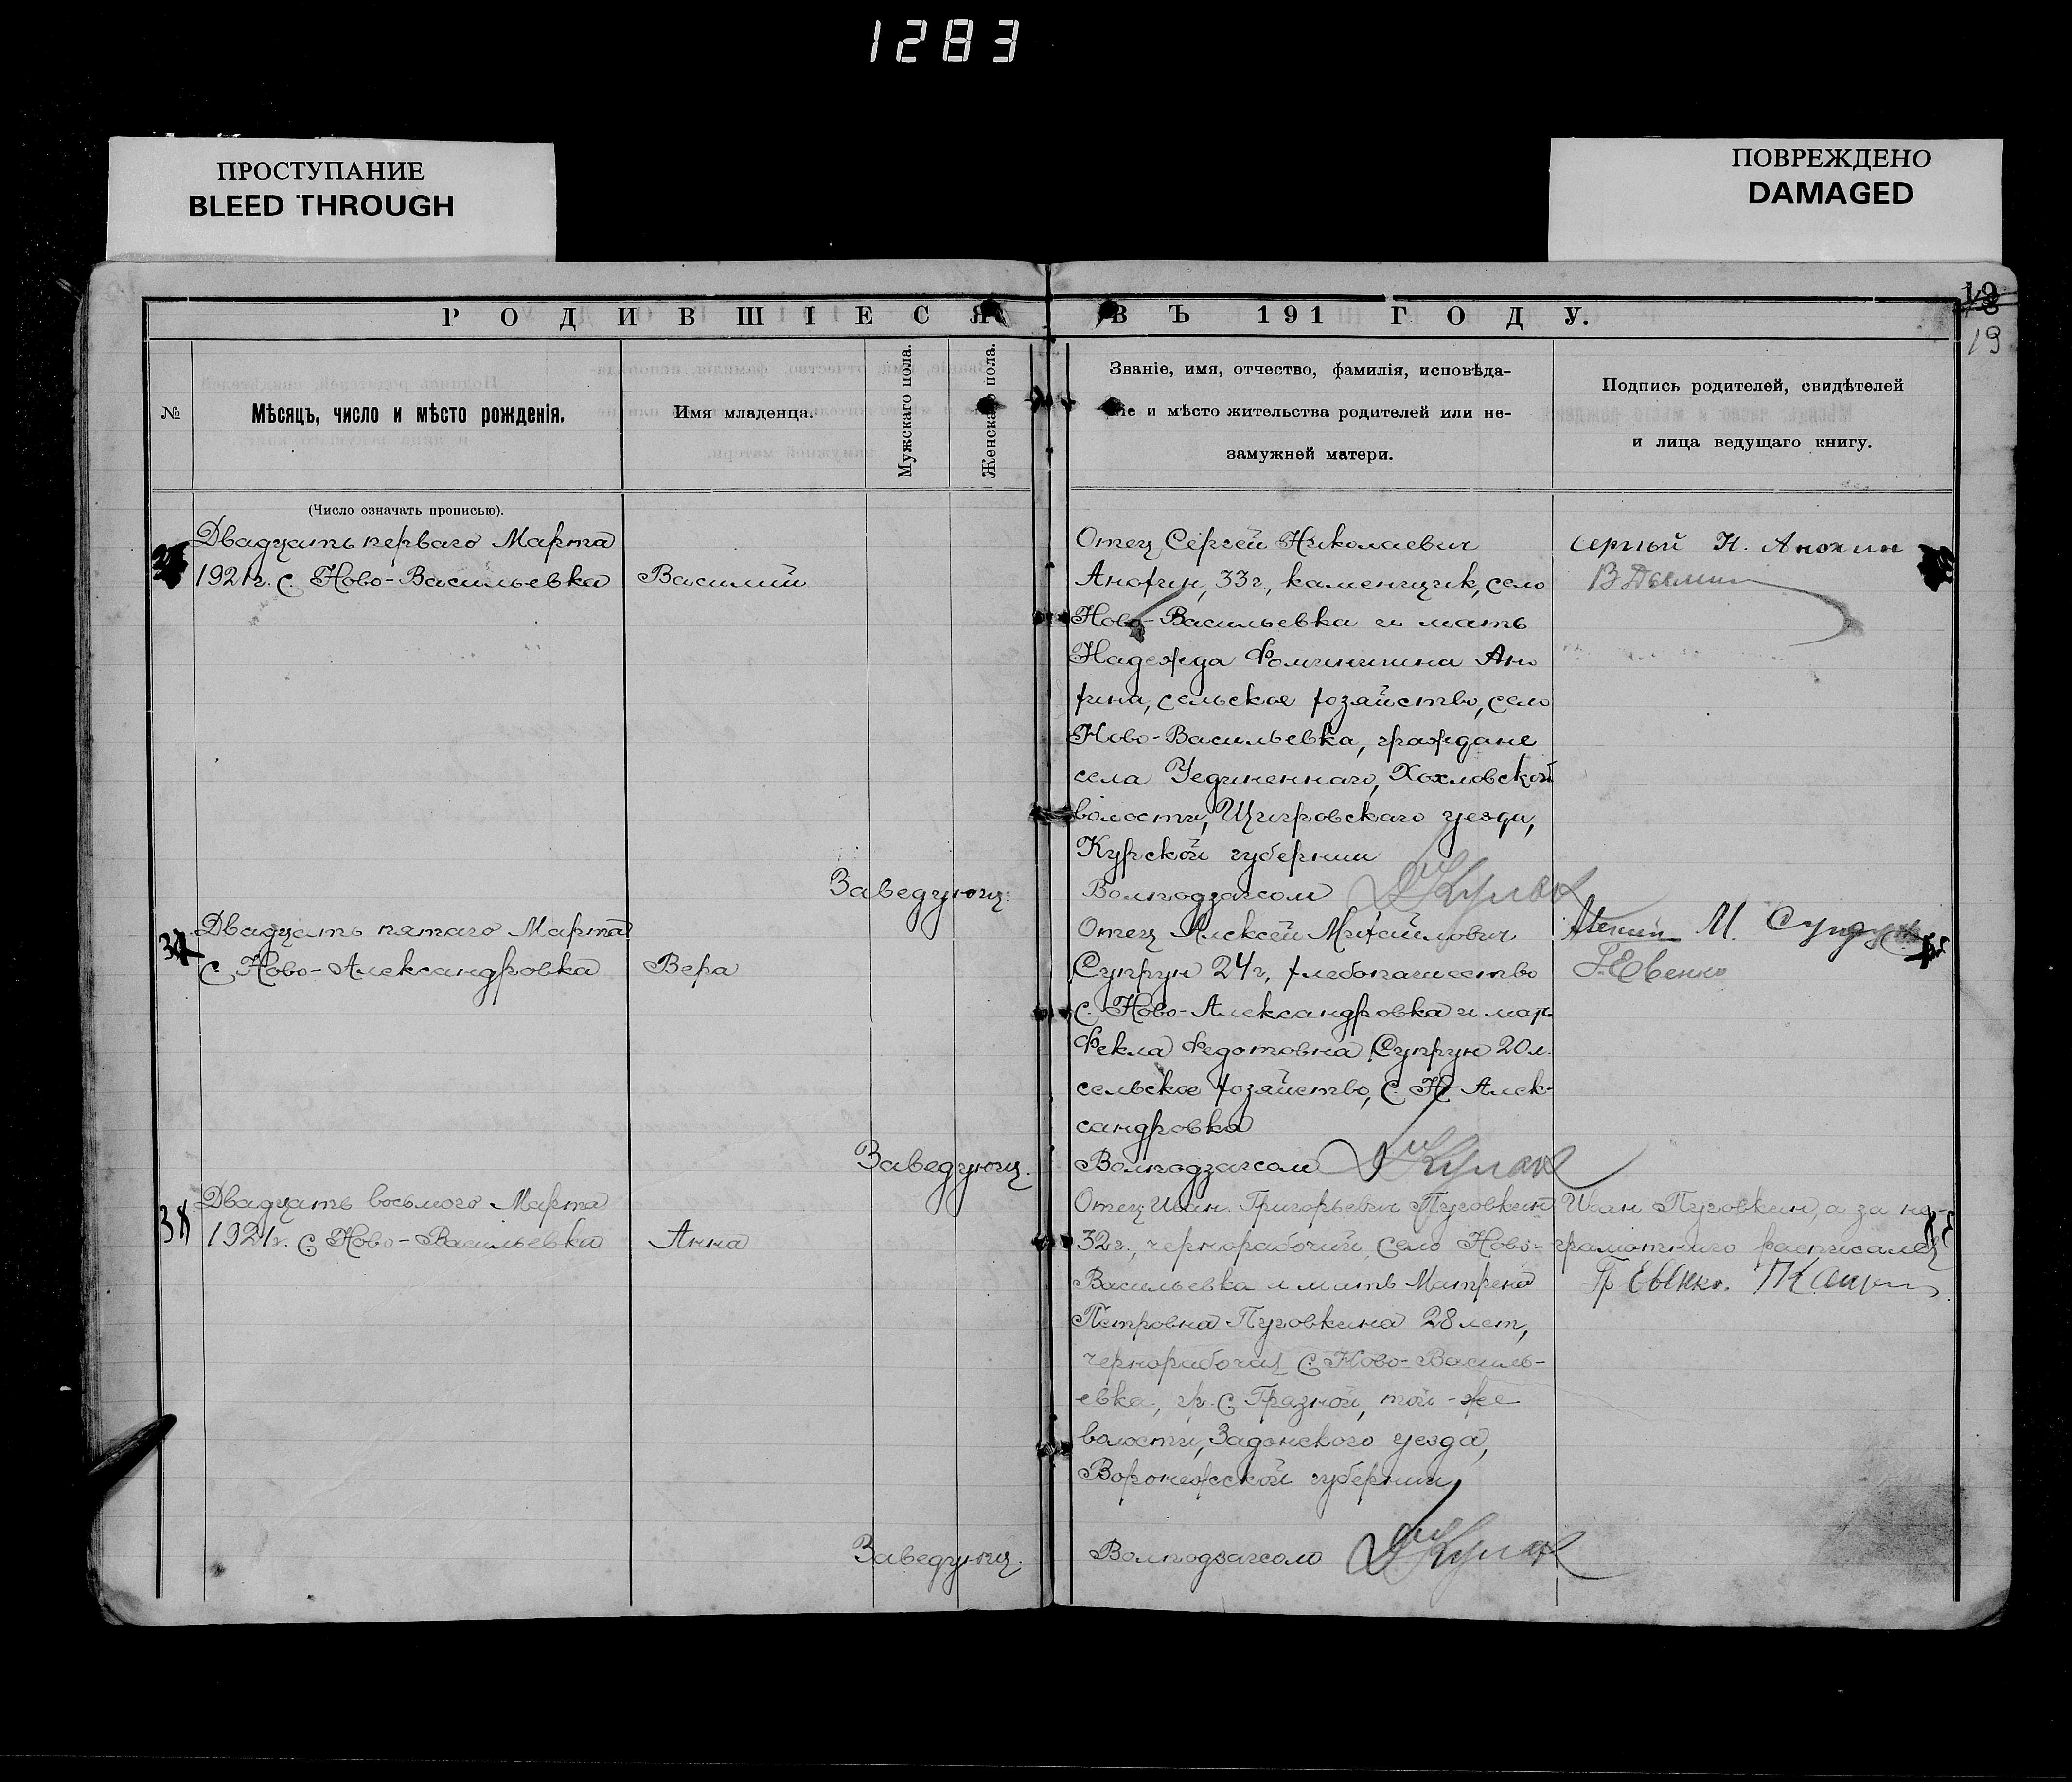 1283
ПРОСТУПАНИЕ
BLEED THROUGH
ПОВРЕЖДЕНО
DAMAGED
19
РОДИВШІЕСЯ ВЪ 191 ГОДУ.
№
Мѣсяцъ, число и мѣсто рожденія.
Имя младенца.
Мужскаго пола.
Женскаго пола.
Званіе, имя, отчество, фамилія, исповѣда-
ніе и мѣсто жительства родителей или не-
замужней матери.
Подпись родителей, свидѣтелей
и лица ведущаго книгу.
(Число означать прописью).
Двадцать перваго Марта
1921г. с. Ново-Васильевка
Василий
Отец Сергей Николаевич
Анохин, 33г., каменщик, село
Ново-Васильевка и мать
Надежда Ано
хина, сельское хозяйство, село
Ново-Васильевка, граждане
села Уединеннаго, Хохловской
волости, Щигровскаго уезда,
Курской губернии
Заведующ. Волподзагсом
Сергый Н. Анохин
37
Двадцать пятаго Марта
с. Ново-Александровка
Вера
Отец Алексей Михайлович
Супрун 24г., хлебопашество
с. Ново-Александровка и мать
Фекла Федотовна Супрун 20л.
сельское хозяйство, с. Н-Алек-
сандровка
Заведующ. Волподзагсом
М. Супрун
Г. Евенко
38
Двадцать восьмого Марта
1921г. с Ново-Васильевка
Анна
Отец Иван Григорьевич Пуговкин
32г., чернорабочий, село Ново-
Васильевка и мать Матрена
Петровна Пуговкина 28 лет,
чернорабочая с. Ново-Василь-
евка, гр. с. Грязной, той-же
волости, Задонского уезда,
Воронежской губернии
Заведующ. Волподзагсом
Иван Пуговкин, а за не-
грамотного расписался
Гр Евенко.